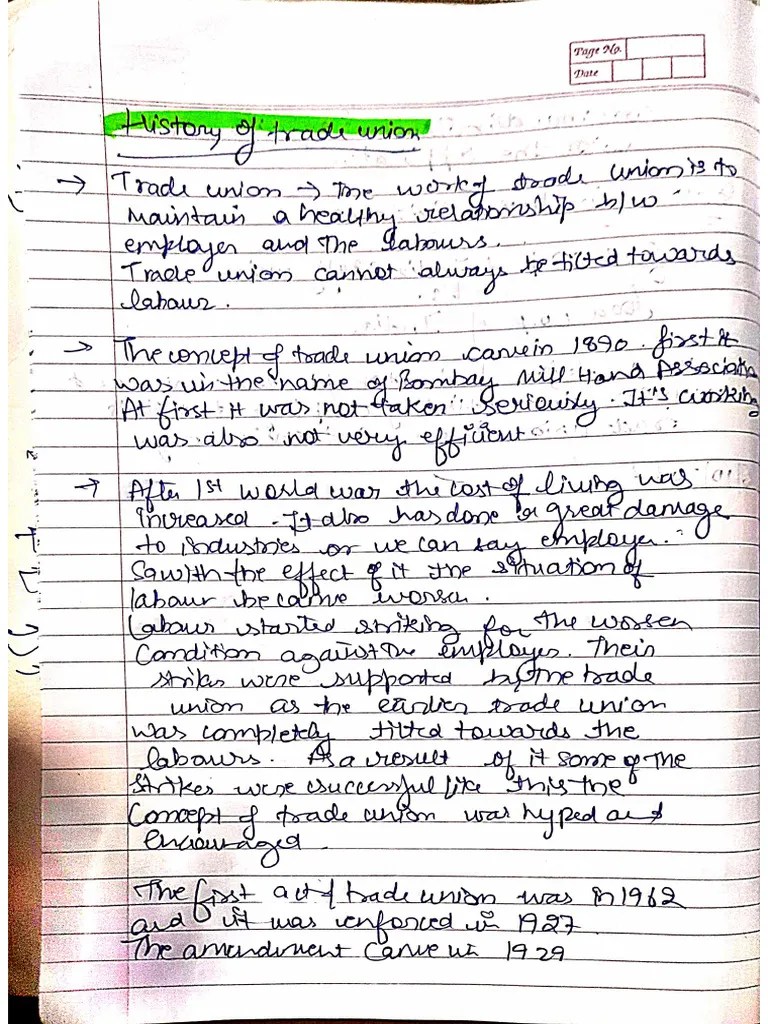 Page No.
Date
History of trade union
→ Trade union → The work of trade union is to
maintain a healthy relationship b/w
employer and the labours.
Trade union cannot always be tilted towards
labour.
→ The concept of trade union came in 1890. first it
was in the name of Bombay Mill Hand Associatn
At first it was not taken seriously. It's working
was also not very efficient
→ After 1st world war the cost of living was
increased. It also has done a great damage
to industries or we can say employer.
So with the effect of it the situation of
labour became worsen.
Labour started striking for the worsen
condition against the employer. Their
strikes were supported by the trade
union as the earlier trade union
was completely tilted towards the
labours. As a result of it some of the
strikes were successful like this the
concept of trade union was hyped and
encouraged.
The first act of trade union was in 1962
and it was enforced in 1927.
The amendment came in 1929